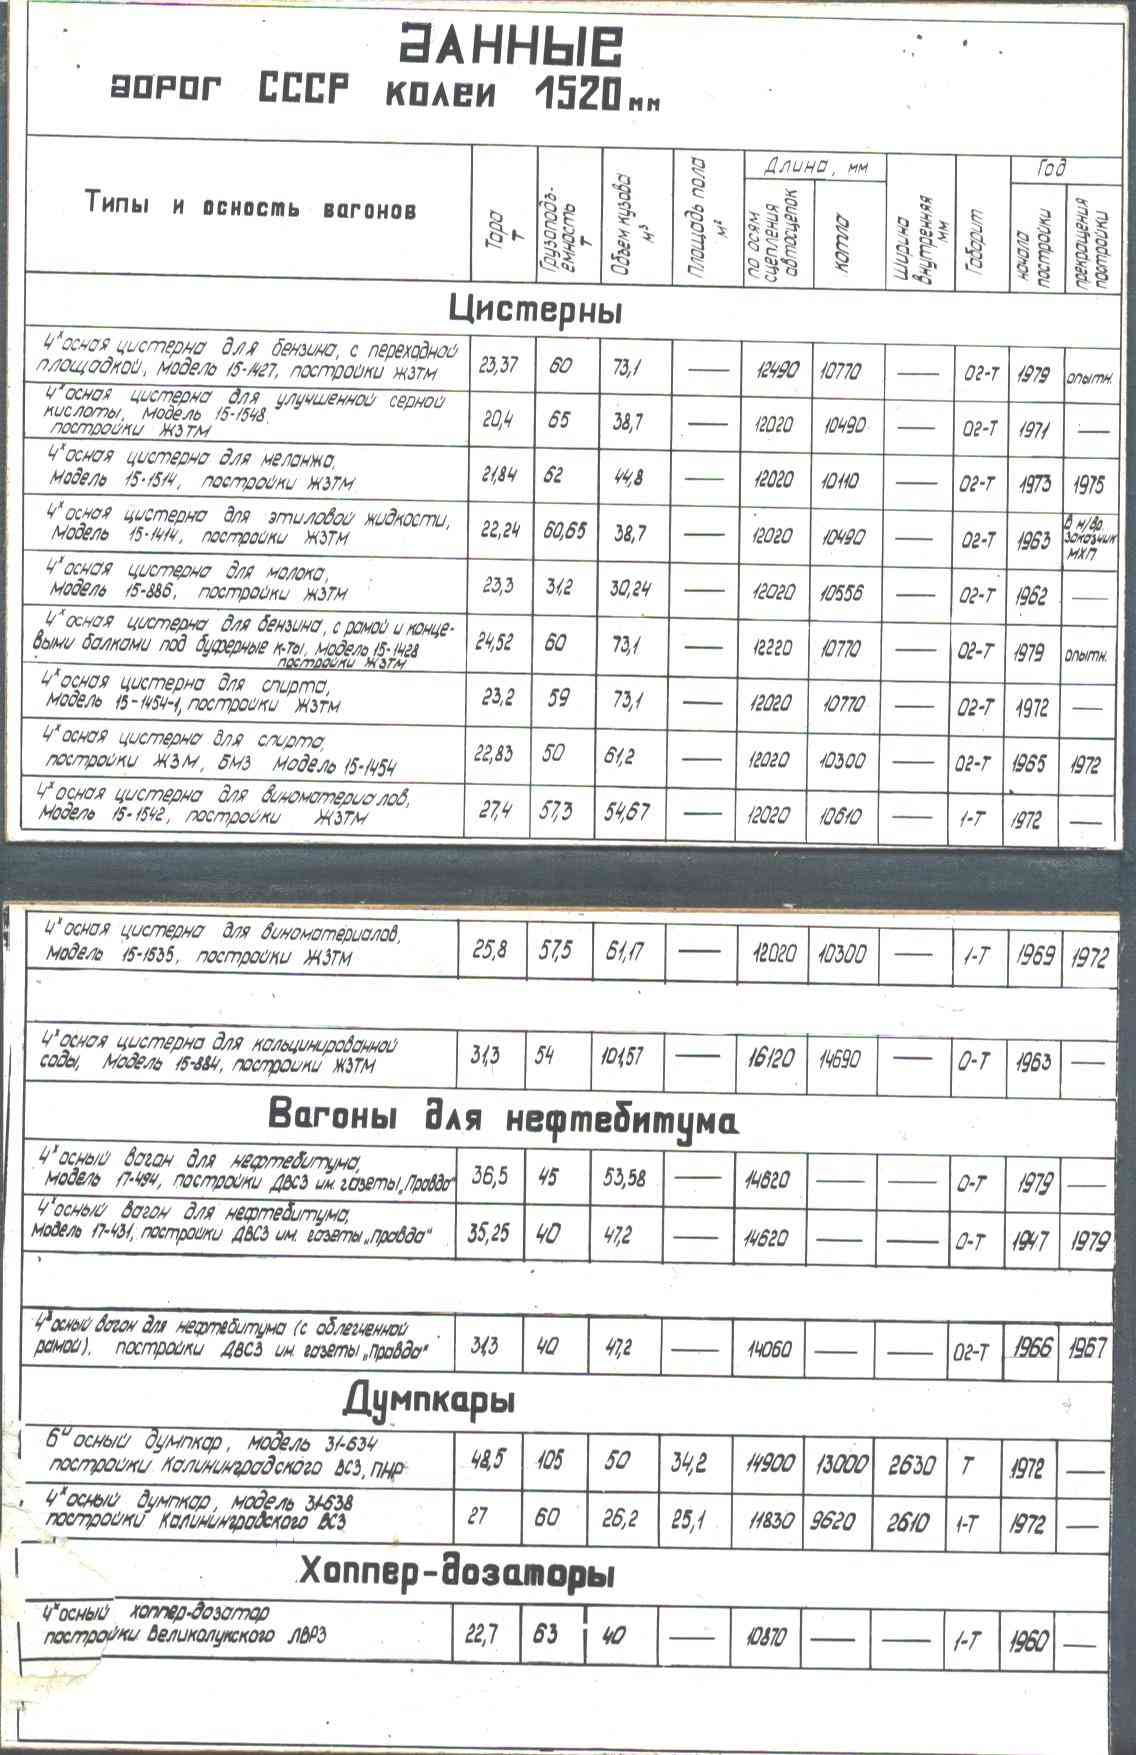 ДАННЫЕ
ДОРОГ СССР КОЛЕИ 1520 мм
Типы и осность вагонов
Тара Т
Грузоподъ-
ёмность Т
Объем кузова м³
Площадь пола м²
Длина, мм
по осям
сцепления
автосцепок
котла
Ширина
внутренняя
мм
Габарит
Год
начала
постройки
прекращения
постройки
Цистерны
4х осная цистерна для бензина, с переходной
площадкой, модель 15-1427, постройки ЖЗТМ 23,37 60 73,1 — 12490 10770 — 02-Т 1979 опытн.
4х осная цистерна для улучшенной серной
кислоты, модель 15-1548
постройки ЖЗТМ 20,4 65 38,7 — 12020 10490 — 02-Т 1971 —
4х осная цистерна для меланжа,
модель 15-1514, постройки ЖЗТМ 21,84 62 44,8 — 12020 10110 — 02-Т 1973 1975
4х осная цистерна для этиловой жидкости,
модель 15-1414, постройки ЖЗТМ 22,24 60,65 38,7 — 12020 10490 — 02-Т 1963
заказчик
МХП
4х осная цистерна для молока,
модель 15-886, постройки ЖЗТМ 23,3 31,2 30,24 — 12020 10556 — 02-Т 1962 —
4х осная цистерна для бензина, с рамой и конце-
выми балками под буферные к-ты, модель 15-1428
постройки ЖЗТМ 24,52 60 73,1 — 12220 10770 — 02-Т 1979 опытн.
4х осная цистерна для спирта,
модель 15-1454-1, постройки ЖЗТМ 23,2 59 73,1 — 12020 10770 — 02-Т 1972 —
4х осная цистерна для спирта,
постройки ЖЗМ, БМЗ модель 15-1454 22,83 50 61,2 — 12020 10300 — 02-Т 1965 1972
4х осная цистерна для виноматериалов,
модель 15-1542, постройки ЖЗТМ 27,4 57,3 54,67 — 12020 10610 — 1-Т 1972 —
4х осная цистерна для виноматериалов,
модель 15-1535, постройки ЖЗТМ 25,8 57,5 61,17 — 12020 10300 — 1-Т 1969 1972
4х осная цистерна для кальцинированной
соды, модель 15-884, постройки ЖЗТМ 31,3 54 101,57 — 16120 14690 — 0-Т 1963 —
Вагоны для нефтебитума
4х осный вагон для нефтебитума,
модель 17-494, постройки ДВСЗ им. газеты „Правда“ 36,5 45 53,58 — 14620 — — 0-Т 1979 —
4х осный вагон для нефтебитума,
модель 17-431, постройки ДВСЗ им. газеты „Правда“ 35,25 40 47,2 — 14620 — — 0-Т 1947 1979
4х осный вагон для нефтебитума (с облегченной
рамой), постройки ДВСЗ им. газеты „Правда“ 31,3 40 47,2 — 14060 — — 02-Т 1966 1967
Думпкары
6и осный думпкар, модель 31-634
постройки Калининградского ВСЗ, ПНР 48,5 105 50 34,2 14900 13000 2630 Т 1972 —
4х осный думпкар, модель 31-638
постройки Калининградского ВСЗ 27 60 26,2 25,1 11830 9620 2610 1-Т 1972 —
Хоппер-дозаторы
4х осный хоппер-дозатор
постройки Великолукского ЛВРЗ 22,7 63 40 — 10870 — — 1-Т 1960 —